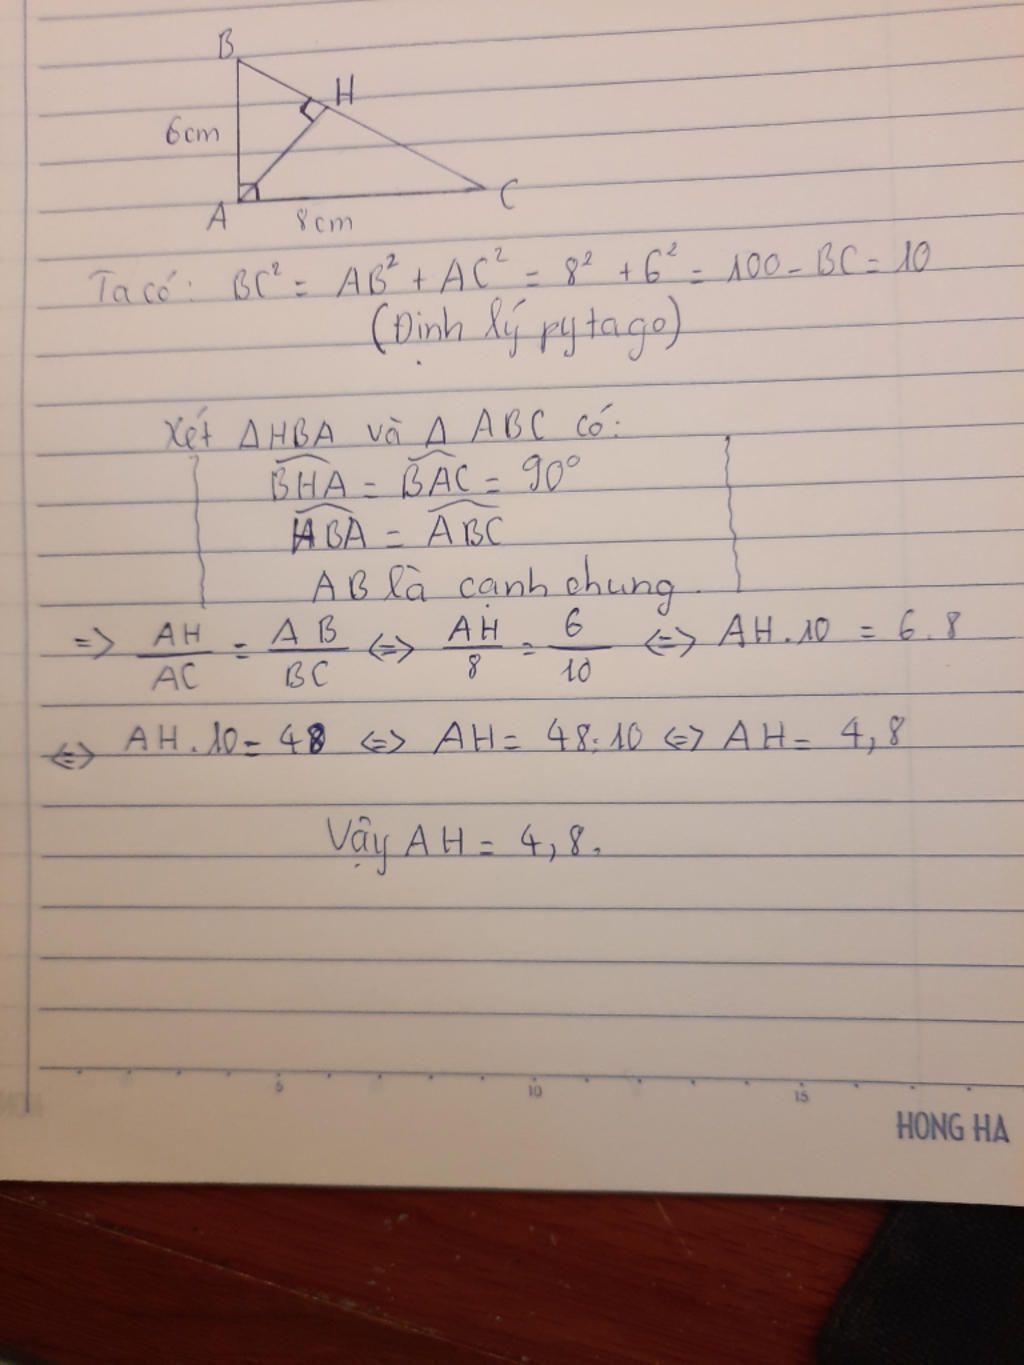 B
H
6cm
A
8cm
C
Ta có: BC² = AB² + AC² = 8² + 6² = 100 - BC = 10
(Định lý pytago)
Xét ΔHBA và Δ ABC có:
BHA = BAC = 90°
HBA = ABC
AB là cạnh chung
=> AH/AC = AB/BC <=> AH/8 = 6/10 <=> AH.10 = 6.8
<=> AH.10 = 48 <=> AH = 48:10 <=> AH = 4,8
Vậy AH = 4,8.
5 10 15
HONG HA